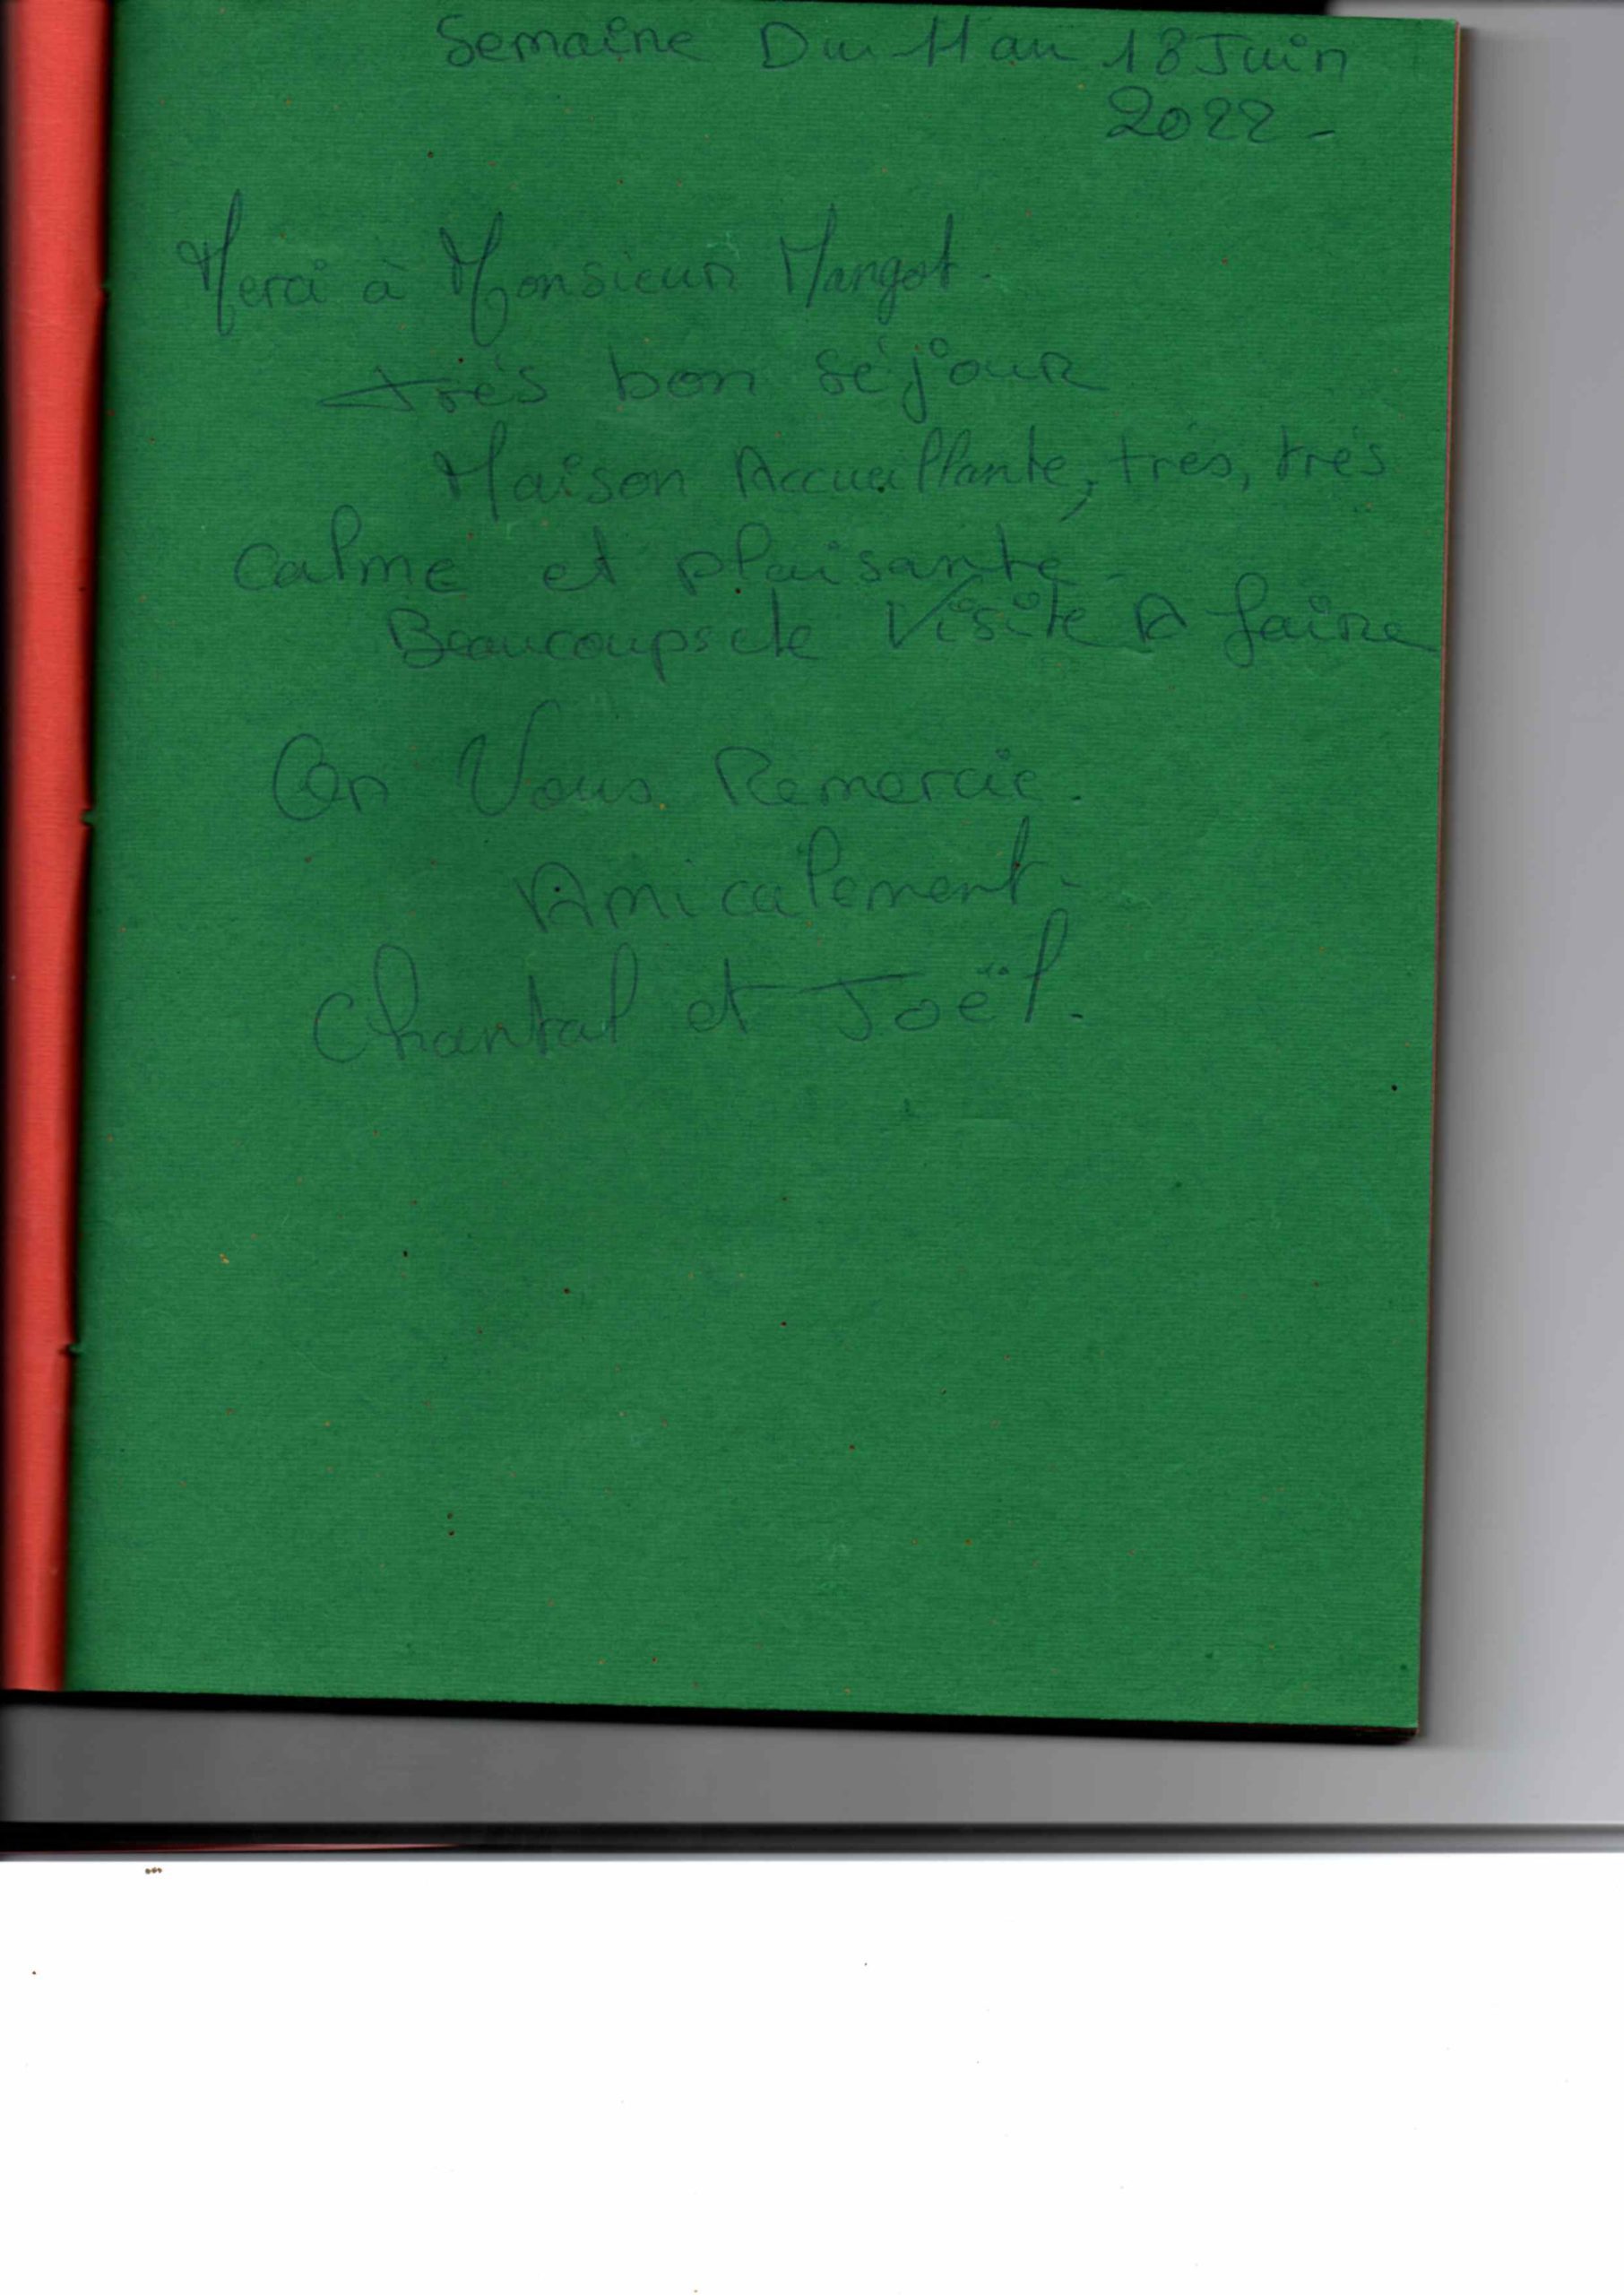 Semaine Du 11 au 18 Juin
2022 -
Merci à Monsieur Mangot.
très bon séjour
Maison Accueillante, trés, trés
calme et plaisante -
Beaucoups de Visite A faire
On Vous Remercie.
Amicalement -
Chantal et Joël.